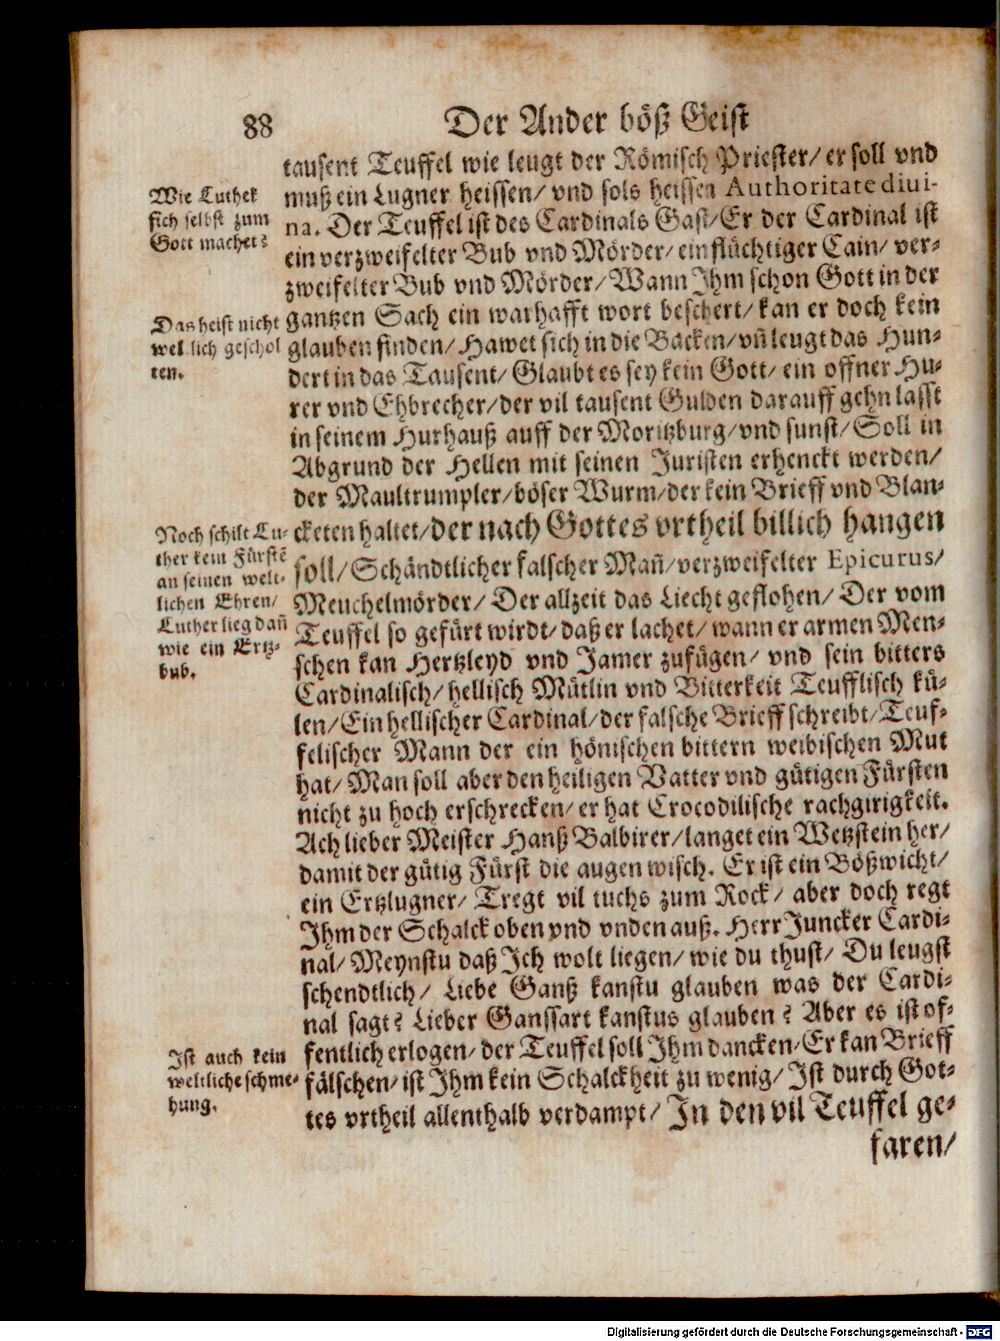 88 Der Ander böß Geist
tausent Teuffel wie leugt der Römisch Priester/ er soll vnd
Wie Luther
sich selbst zum
Gott machet?
muß ein Lugner heissen/ vnd sols heissen Authoritate diui-
na. Der Teuffel ist des Cardinals Gast/ Er der Cardinal ist
ein verzweifelter Bub vnd Mörder/ ein flüchtiger Cain/ ver-
zweifelter Bub vnd Mörder/ Wann Ihm schon Gott in der
Das heist nicht
weltlich geschol
ten.
gantzen Sach ein warhafft wort beschert/ kan er doch kein
glauben finden/ Hawet sich in die Backen/ vñ leugt das Hun-
dert in das Tausent/ Glaubt es sey kein Gott/ ein offner Hu-
rer vnd Ehbrecher/ der vil tausent Gulden darauff gehn lasst
in seinem Hurhauß auff der Moritzburg/ vnd sunst/ Soll in
Abgrund der Hellen mit seinen Juristen erhenckt werden/
der Maultrumpler/ böser Wurm/ der kein Brieff vnd Blan-
Noch schilt Lu-
ther kein Fürstē
an seinen welt-
lichen Ehren/
Luther lieg dañ
wie ein Ertz-
bub.
cketen haltet/ der nach Gottes vrtheil billich hangen
soll/ Schändtlicher falscher Mañ/ verzweifelter Epicurus/
Meuchelmörder/ Der allzeit das Liecht geflohen/ Der vom
Teuffel so gefürt wirdt/ daß er lachet/ wann er armen Men-
schen kan Hertzleyd vnd Jamer zufügen/ vnd sein bitters
Cardinalisch/ hellisch Mütlin vnd Bitterkeit Teufflisch kü-
len/ Ein hellischer Cardinal/ der falsche Brieff schreibt/ Teuf-
felischer Mann der ein hönischen bittern weibischen Mut
hat/ Man soll aber den heiligen Vatter vnd gütigen Fürsten
nicht zu hoch erschrecken/ er hat Crocodilische rachgirigkeit.
Ach lieber Meister Hanß Balbirer/ langet ein Wetzstein her/
damit der gütig Fürst die augen wisch. Er ist ein Bößwicht/
ein Ertzlugner/ Tregt vil tuchs zum Rock/ aber doch regt
Ihm der Schalck oben vnd vnden auß. Herr Juncker Cardi-
nal/ Meynstu daß Ich wolt liegen/ wie du thust/ Du leugst
schendtlich/ Liebe Ganß kanstu glauben was der Cardi-
nal sagt? Lieber Ganssart kanstus glauben? Aber es ist of-
Ist auch kein
weltliche schme-
hung.
fentlich erlogen/ der Teuffel soll Ihm dancken/ Er kan Brieff
fälschen/ ist Ihm kein Schalckheit zu wenig/ Ist durch Got-
tes vrtheil allenthalb verdampt/ In den vil Teuffel ge-
faren/
Digitalisierung gefördert durch die Deutsche Forschungsgemeinschaft - DFG